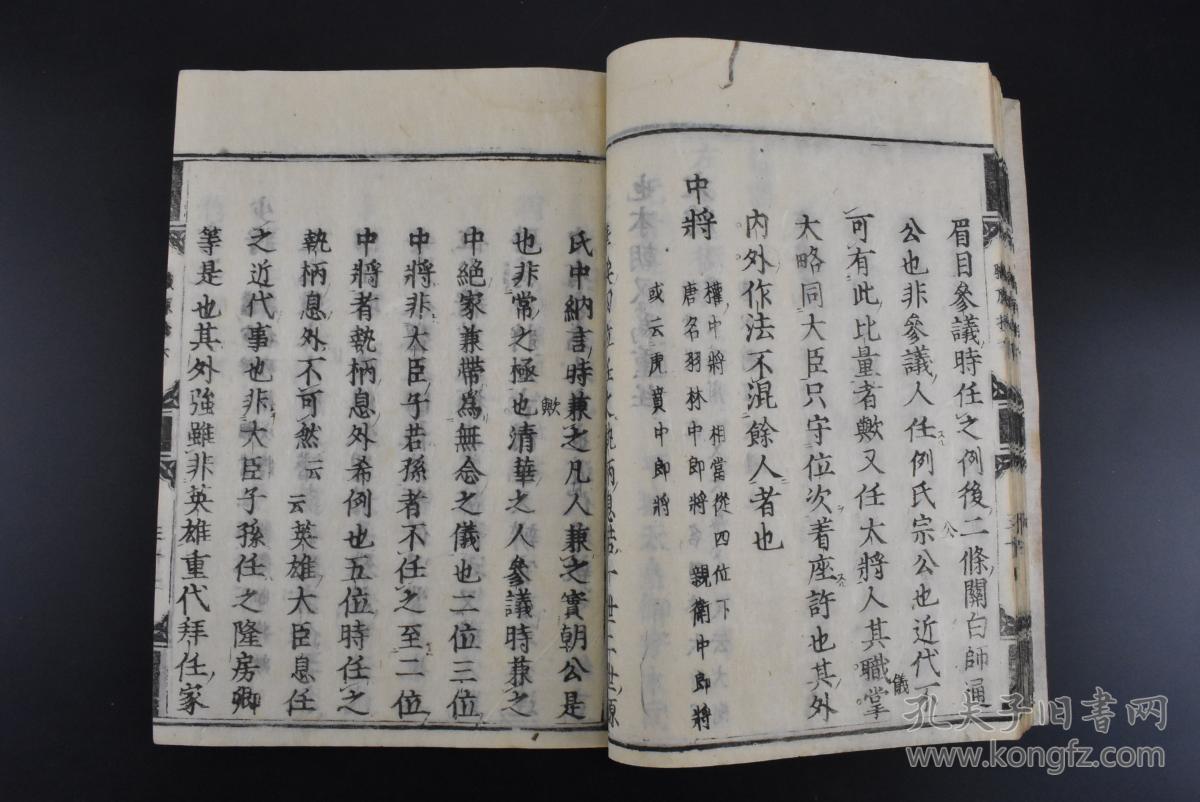 眉目參議時任之例後二條關白師通
公也非參議人任例氏宗公也近代不
可有此儀比量者歟又任大將人其職掌
大略同大臣只守位次着座許也其外
內外作法不混餘人者也
中將
權中將 相當從四位下
唐名羽林中郎將 親衛中郎將
或云虎賁中郎將
氏中納言時兼之凡人兼之實朝公是
也非常之極也歟清華之人參議時兼之
中絕家兼帶爲無念之儀也二位三位
中將非大臣子若孫者不任之至二位
中將者執柄息外希例也五位時任之
執柄息外不可然云云英雄大臣息任
之近代事也非大臣子孫任之隆房卿
等是也其外強雖非英雄重代拜任家
孔夫子旧书网
www.kongfz.com